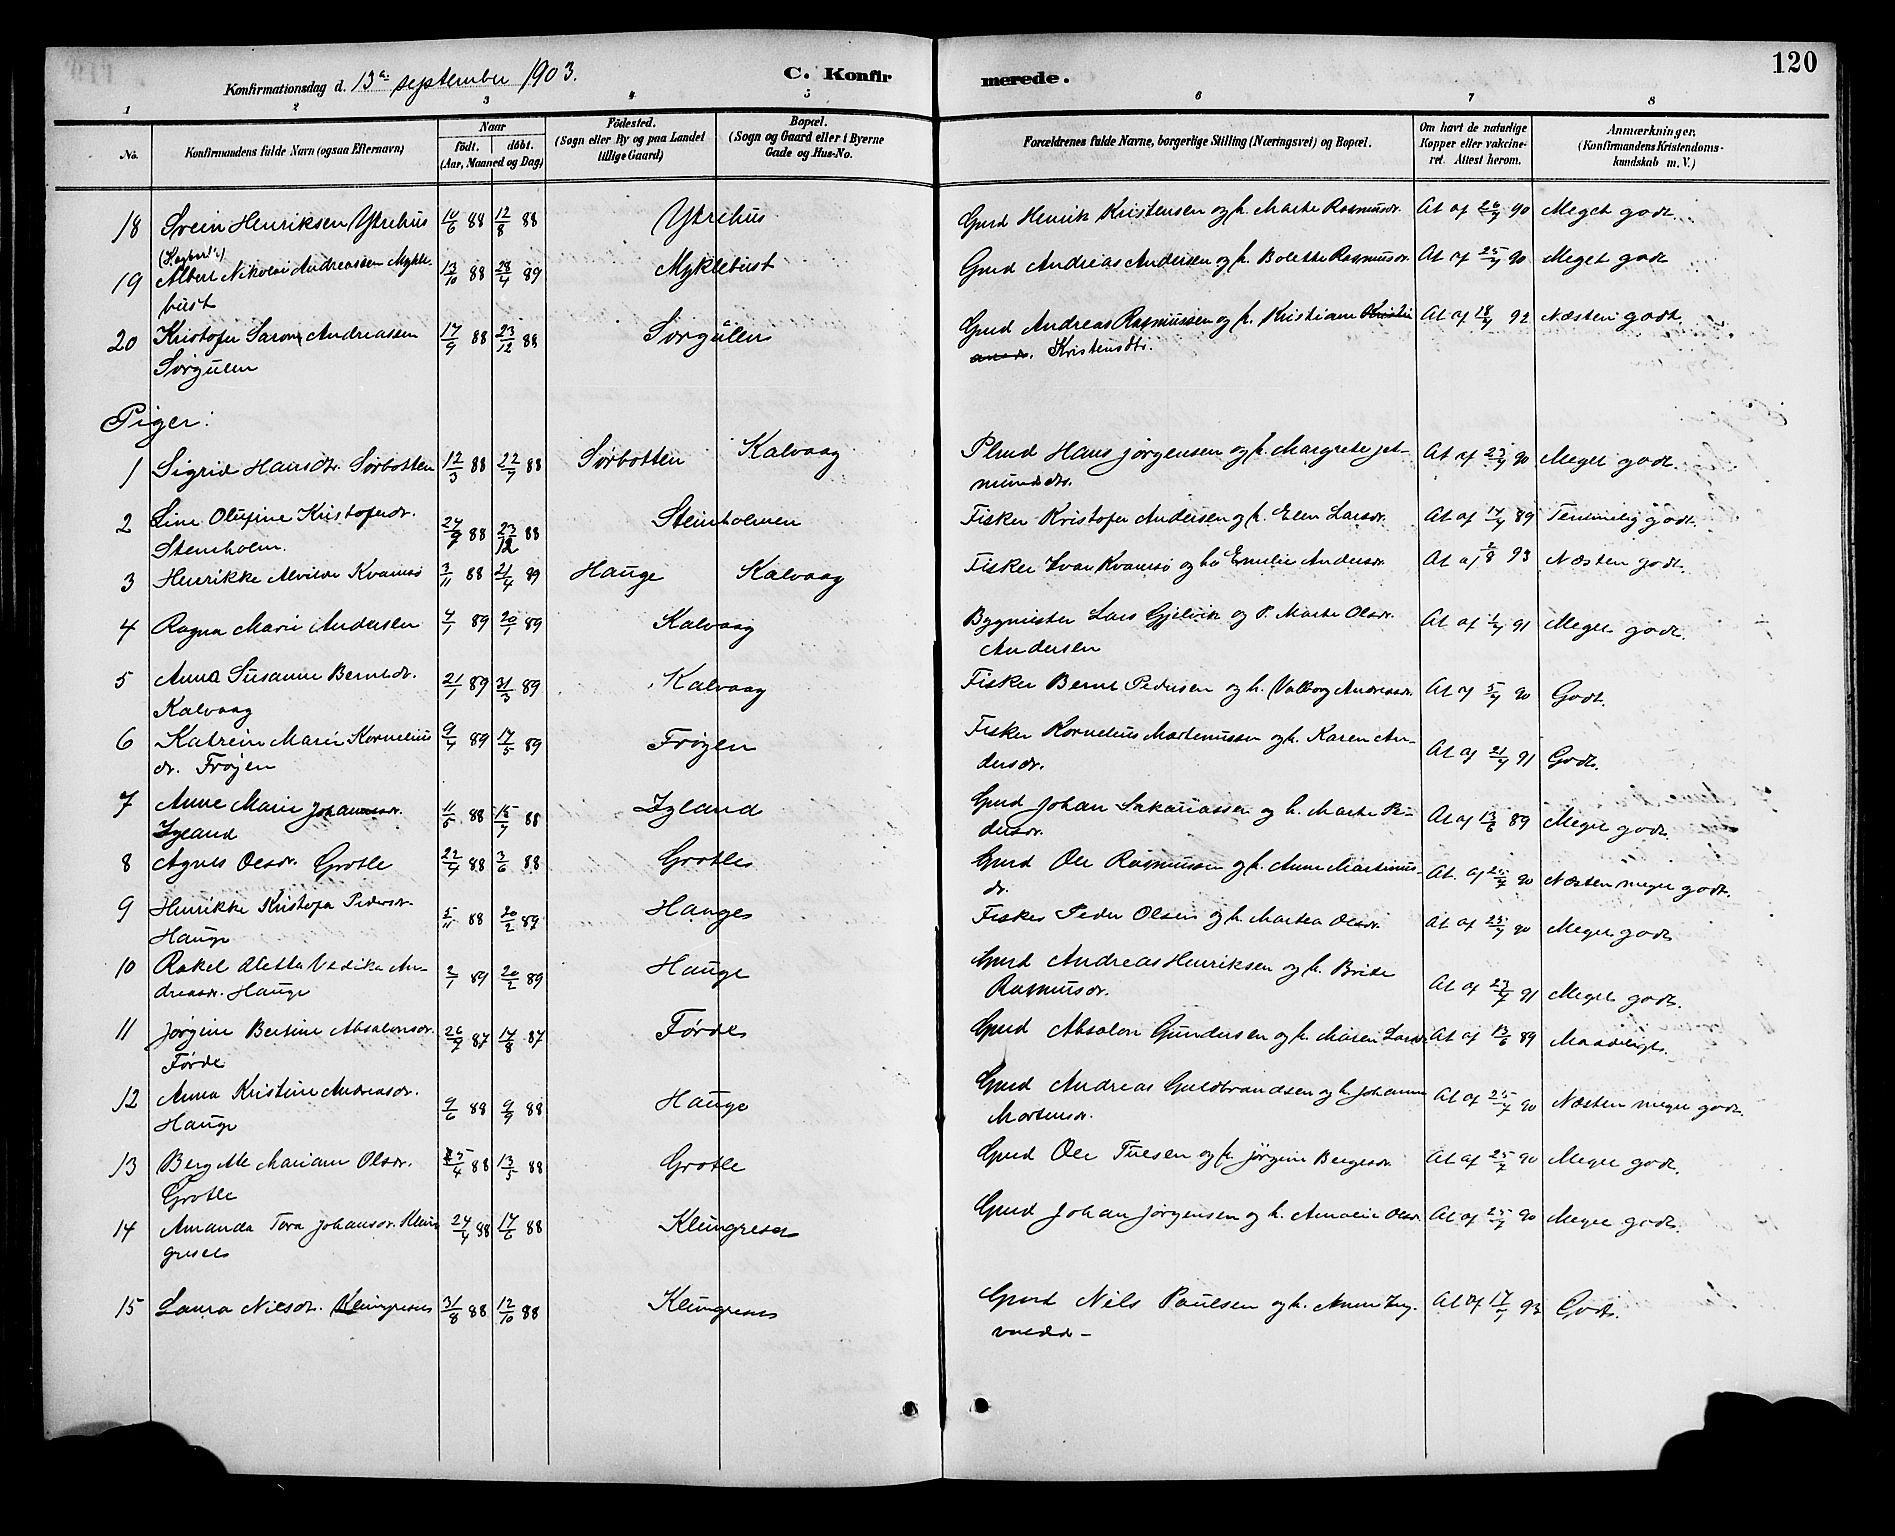 120
Konfirmationsdag d. 13de september 1903. C. Konfirmerede.
1 2 3 4 5 6 7 8
No. Konfirmandens fulde Navn (ogsaa Efternavn) Naar födt. döbt. (Aar, Maaned og Dag) Födested. (Sogn eller By og paa Landet tillige Gaard) Bopæl. (Sogn og Gaard eller i Byerne Gade og Hus-No. Forældrenes fulde Navne, borgerlige Stilling (Næringsvei) og Bopæl. Om havt de naturlige Kopper eller vakcineret. Attest herom. Anmærkninger. (Konfirmandens Kristendomskundskab m. V.)
18 Svein Henriksen Ytrehus 10/6 88 12/8 88 Ytrehus Gmd Henrik Kristensen og h. Marte Rasmusdr. At af 26/7 90 Meget godt
19 Albert Nikolai Andreassen Myklebust 13/10 88 28/4 89 Myklebust Gmd Andreas Andersen og h. Bolette Rasmusdr. At af 25/7 90 Meget godt
20 Kristofer Andreasen Sørgulen 17/9 88 23/12 88 Sørgulen Gmd Andreas Rasmussen og h. Kristiane Kristensdtr. At af 18/7 92 Næsten godt
Piger:
1 Sigrid Hansdr. Sørbotten 12/3 88 22/7 88 Sørbotten Kalvaag Plmd Hans Jørgensen og h. Margrete Jetmundsdr. At af 23/7 90 Meget godt.
2 Line Olufine Kristoferdr. Steinholm. 24/9 88 23/12 88 Steinholmen Fisker Kristofer Andersen og h. Elen Larsdr. At af 17/7 89 Temmelig godt.
3 Henrikke Alvilde Kvamsø 3/11 88 21/4 89 Hauge Kalvaag Fisker Ivar Kvamsø og h. Emilie Andersdr. At af 2/8 93 Næsten godt.
4 Ragna Marie Andersen 4/1 89 20/1 89 Kalvaag Bygmester Lars Gjelvik og P. Marte Olsdr. Andersen At af 1/7 91 Meget godt.
5 Anna Susanne Berntdr. Kalvaag 21/1 89 31/3 89 Kalvaag Fisker Bernt Pedersen og h. Valborg Andreasdr. At af 5/7 90 Godt.
6 Katrine Marie Korneliusdr. Frøjen 9/4 89 17/5 89 Frøjen Fisker Kornelius Martinussen og h. Karen Andersdr. At af 21/7 91 Godt.
7 Anne Marie Johannesdr. Igland 11/5 88 15/7 88 Igland Gmd Johan Sakariassen og h. Marte Pedersdr. At af 13/6 89 Meget godt.
8 Agnes Olsdr. Grotle 22/4 88 3/6 88 Grotle Gmd Ole Rasmussen og h. Anne Martinusdr. At af 25/7 90 Næsten meget godt.
9 Henrikke Kristofa Pedersdr. Hauge 5/11 88 20/2 89 Hauge Fisker Peder Olsen og h. Martea Olsdr. At af 25/7 90 Meget godt
10 Rakel Aletta Vedika Andreasdr. Hauge 2/1 89 20/2 89 Hauge Gmd Andreas Henriksen og h. Brite Rasmusdr. At af 23/7 91 Meget godt.
11 Jørgine Bertine Absalonsdr. Førde 26/7 87 14/8 87 Førde Gmd Absalon Gundersen og h. Maren Larsdr. At af 13/6 89 Maadeligt.
12 Anna Kristine Andreasdr. Hauge 9/6 88 9/9 88 Hauge Gmd Andreas Guldbrandsen og h. Johanne Mortensdr. At af 25/7 90 Næsten meget godt.
13 Bergitte Mariane Olsdr. Grotle 25/4 88 13/5 88 Grotle Gmd Ole Tuesen og h. Jørgine Bergesdr. At af 25/7 90 Meget godt.
14 Amanda Tora Johansdr. Klungreset 24/4 88 17/6 88 Klungreset Gmd Johan Jørgensen og h. Amalie Olsdr. At af 25/7 90 Meget godt.
15 Laura Nilsdr. Klungreset 31/8 88 12/10 88 Klungreset Gmd Nils Paulsen og h. Anne At af 17/7 93 Godt.